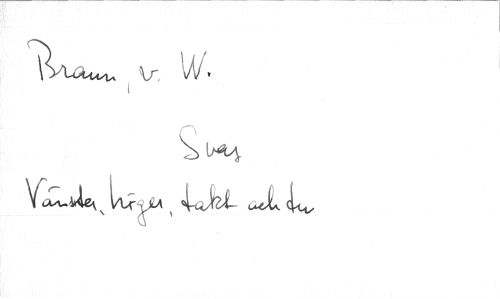 Braun, v. W.
Svar
Vänster, höger, takt och tu